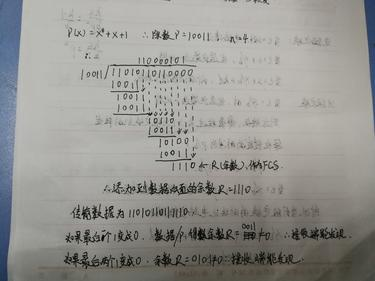 P(X)=X⁴+X+1 ∴除数P=10011 n=4
∴
11000101
10011 11010110110000
10011
10011
10011
10110
10011
10100
10011
1110 ← R(余数),作为FCS.
∴添加到数据后面的余数R=1110.
传输数据为
如果最后一个1变成0. 数据/P,得数余数R= 0011 ≠0. ∴接收端能发现.
如果最后两个1变成0. 余数R=0101≠0∴接收端能发现.